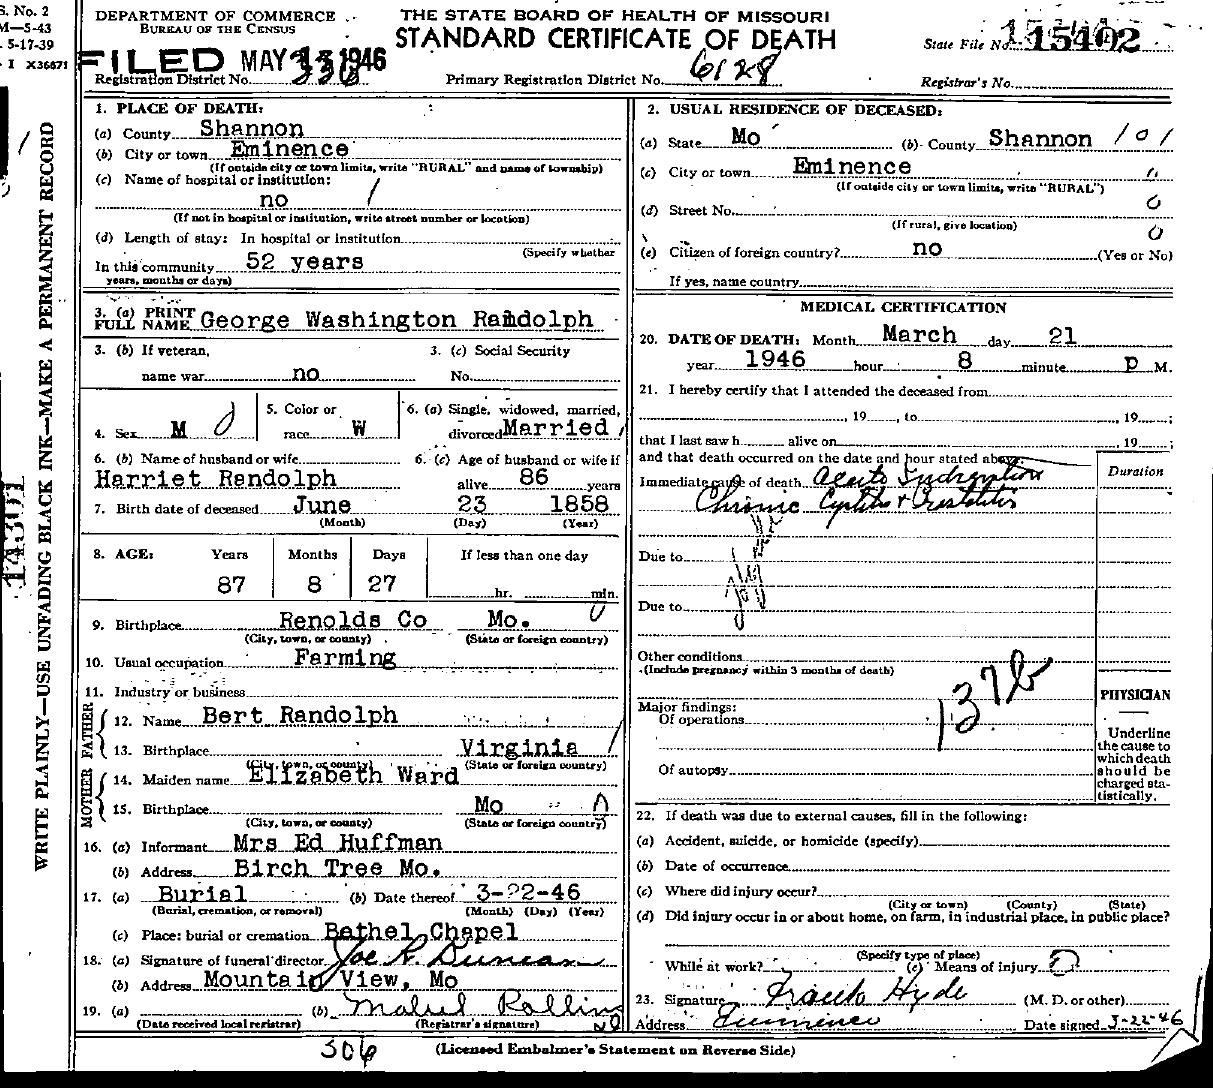 S. No. 2
M—5-43
5-17-39
I X36671
DEPARTMENT OF COMMERCE
BUREAU OF THE CENSUS
THE STATE BOARD OF HEALTH OF MISSOURI
STANDARD CERTIFICATE OF DEATH
State File No. 15402
FILED MAY 1946
Registration District No. 330
Primary Registration District No. 6128
Registrar's No.
WRITE PLAINLY—USE UNFADING BLACK INK—MAKE A PERMANENT RECORD
14301
1. PLACE OF DEATH:
(a) County Shannon
(b) City or town Eminence
(If outside city or town limits, write "RURAL" and name of township)
(c) Name of hospital or institution:
no
(If not in hospital or institution, write street number or location)
(d) Length of stay: In hospital or institution
(Specify whether
In this community 52 years
years, months or days)
2. USUAL RESIDENCE OF DECEASED:
(a) State Mo (b) County Shannon 101
(c) City or town Eminence
(If outside city or town limits, write "RURAL")
0
(d) Street No.
(If rural, give location)
0
(e) Citizen of foreign country? no (Yes or No)
If yes, name country
3. (a) PRINT
FULL NAME George Washington Randolph
3. (b) If veteran,
name war no
3. (c) Social Security
No.
4. Sex M
5. Color or
race W
6. (a) Single, widowed, married,
divorced Married
6. (b) Name of husband or wife
Harriet Randolph
6. (c) Age of husband or wife if
alive 86 years
7. Birth date of deceased June 23 1858
(Month) (Day) (Year)
8. AGE: Years Months Days If less than one day
87 8 27 hr. min.
9. Birthplace Renolds Co Mo. 0
(City, town, or county) (State or foreign country)
10. Usual occupation Farming
11. Industry or business
FATHER
12. Name Bert Randolph
13. Birthplace Virginia
(City, town, or county) (State or foreign country)
MOTHER
14. Maiden name Elizabeth Ward
15. Birthplace Mo
(City, town, or county) (State or foreign country)
16. (a) Informant Mrs Ed Huffman
(b) Address Birch Tree Mo.
17. (a) Burial (b) Date thereof 3-22-46
(Burial, cremation, or removal) (Month) (Day) (Year)
(c) Place: burial or cremation Bethel Chapel
18. (a) Signature of funeral director Joe R. Duncan
(b) Address Mountain View, Mo
19. (a) (b) Mabel Rollins
(Date received local registrar) (Registrar's signature)
MEDICAL CERTIFICATION
20. DATE OF DEATH: Month March day 21
year 1946 hour 8 minute P M.
21. I hereby certify that I attended the deceased from
, 19 , to , 19 ;
that I last saw h alive on , 19 ;
and that death occurred on the date and hour stated above
Duration
Immediate cause of death
Chronic Cystitis + Prostatitis
Due to
Due to
Other conditions
(Include pregnancy within 3 months of death)
137b
Major findings:
Of operations
Of autopsy
PHYSICIAN
Underline
the cause to
which death
should be
charged sta-
tistically.
22. If death was due to external causes, fill in the following:
(a) Accident, suicide, or homicide (specify)
(b) Date of occurrence
(c) Where did injury occur?
(City or town) (County) (State)
(d) Did injury occur in or about home, on farm, in industrial place, in public place?
(Specify type of place)
While at work? (e) Means of injury
23. Signature Hyde (M. D. or other)
Address Eminence Date signed 3-22-46
306
(Licensed Embalmer's Statement on Reverse Side)